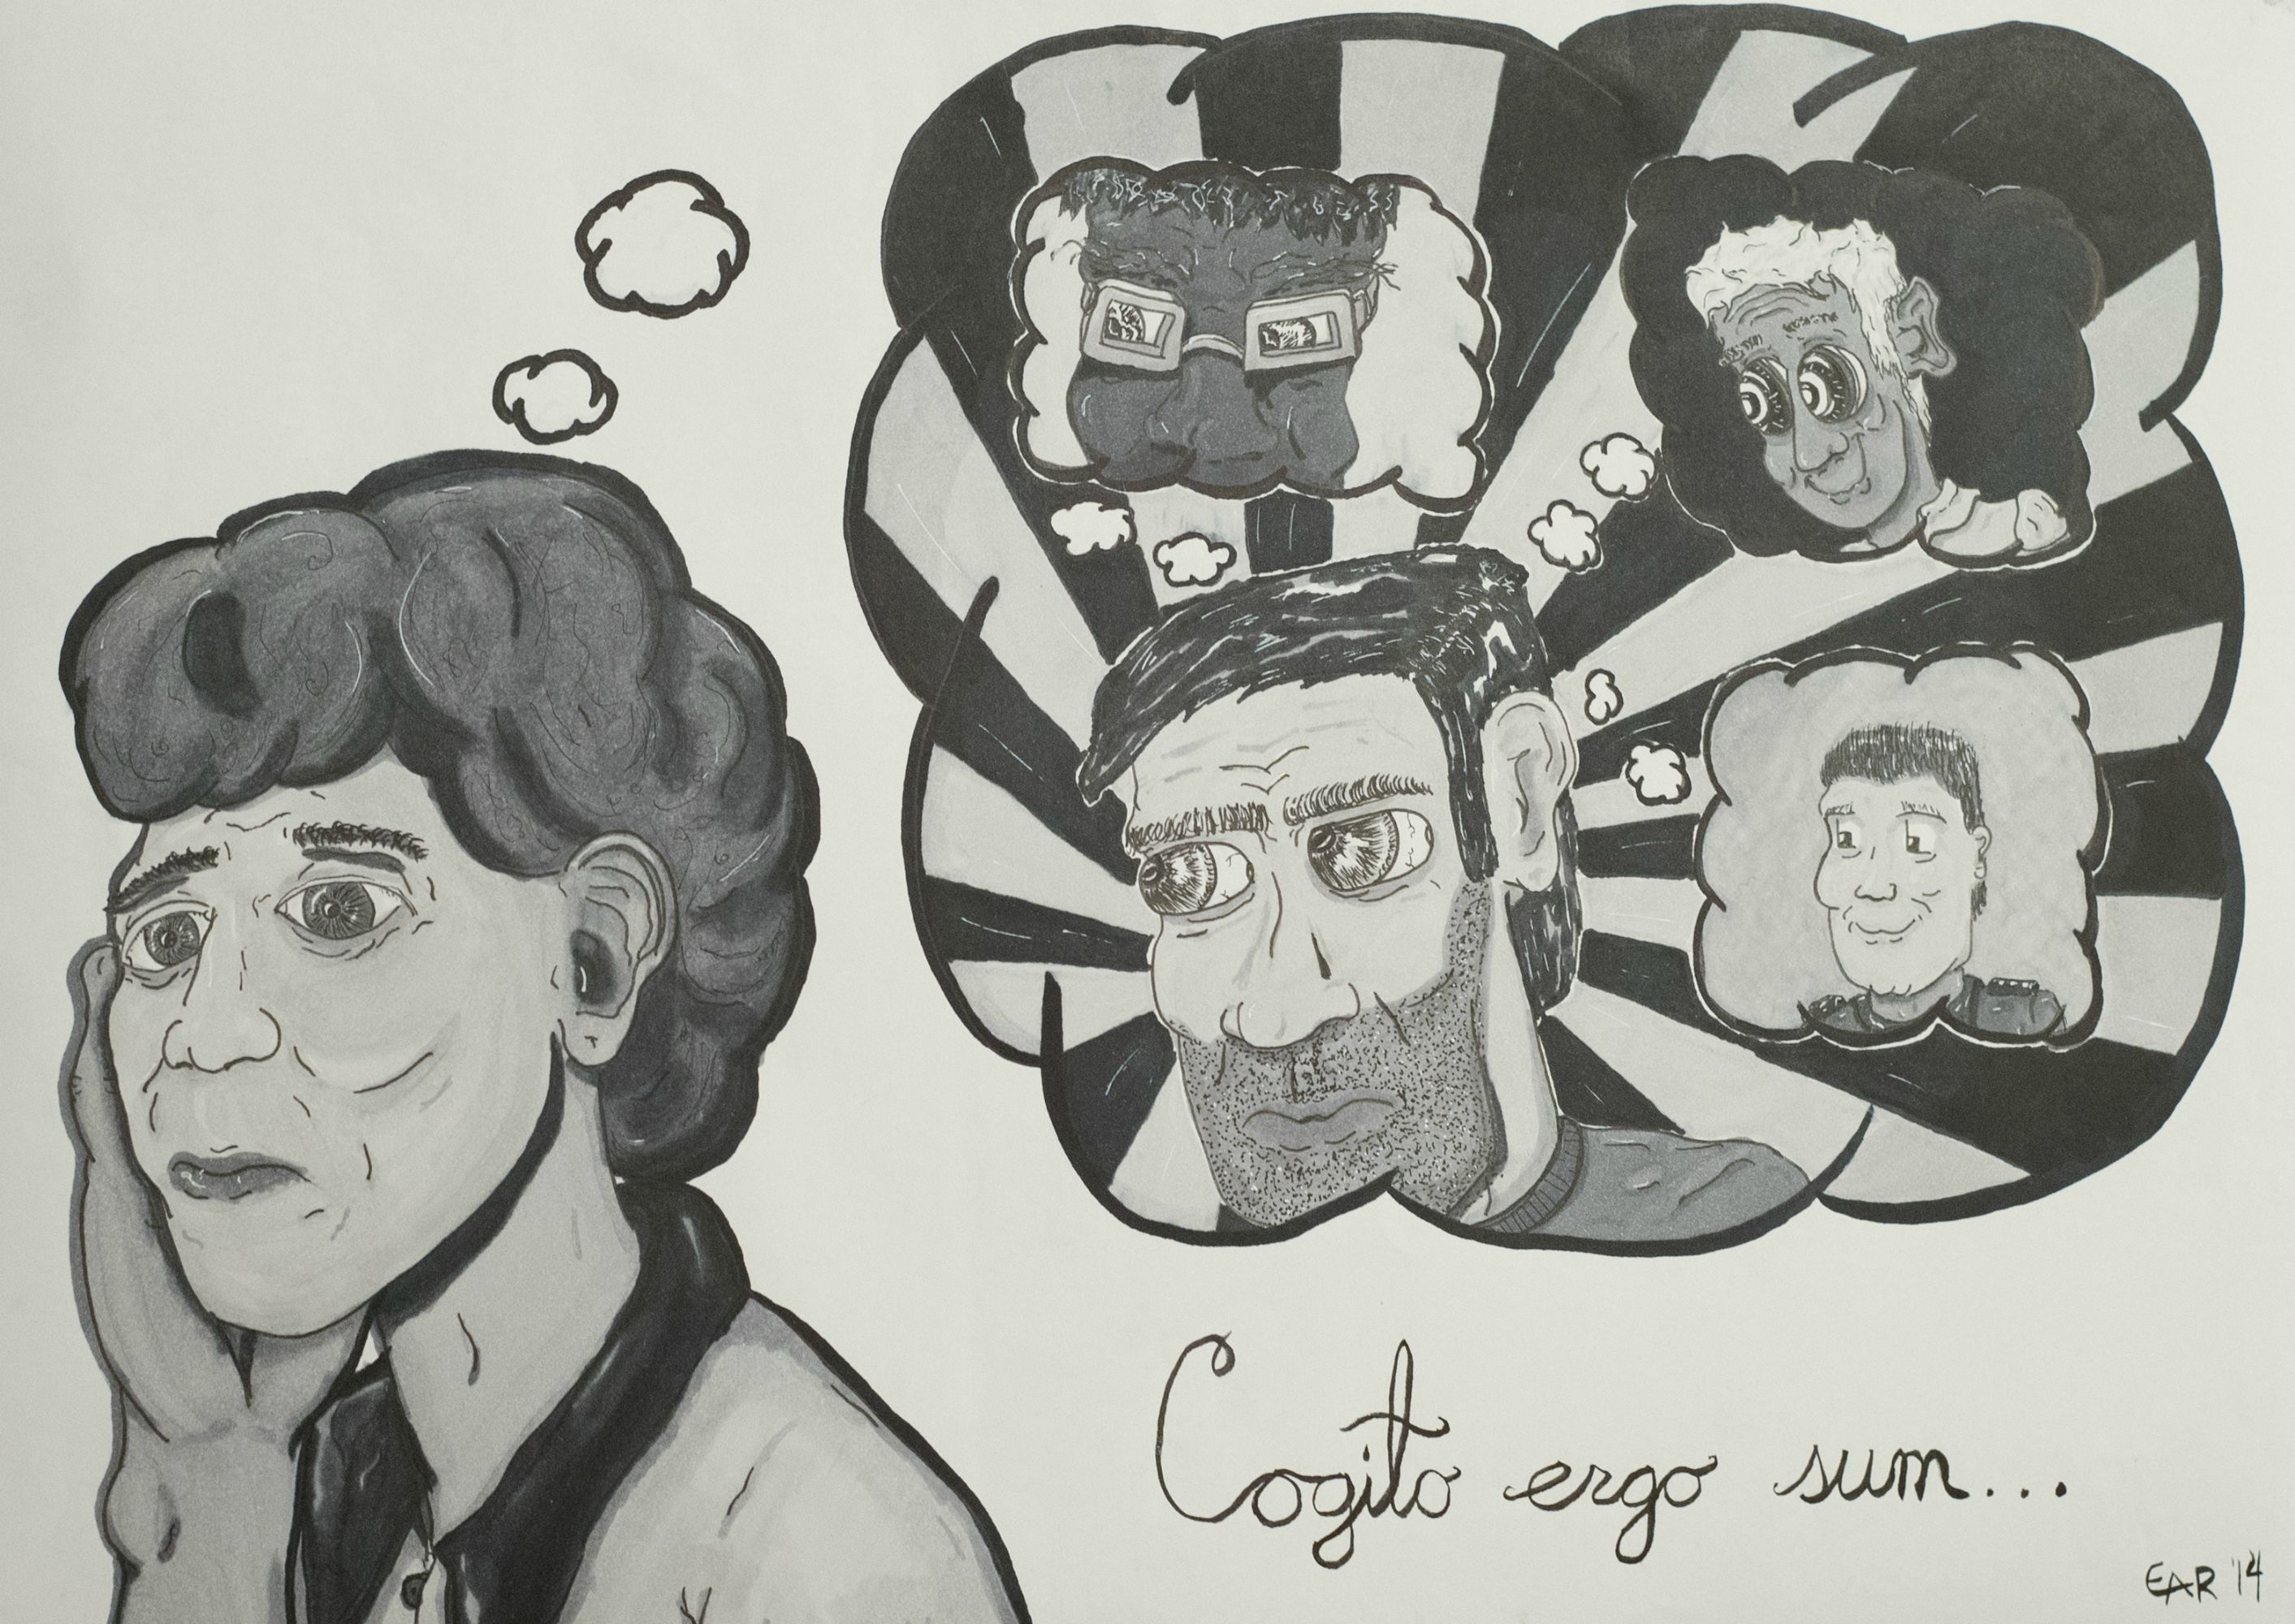 Cogito ergo sum...
EAR '14